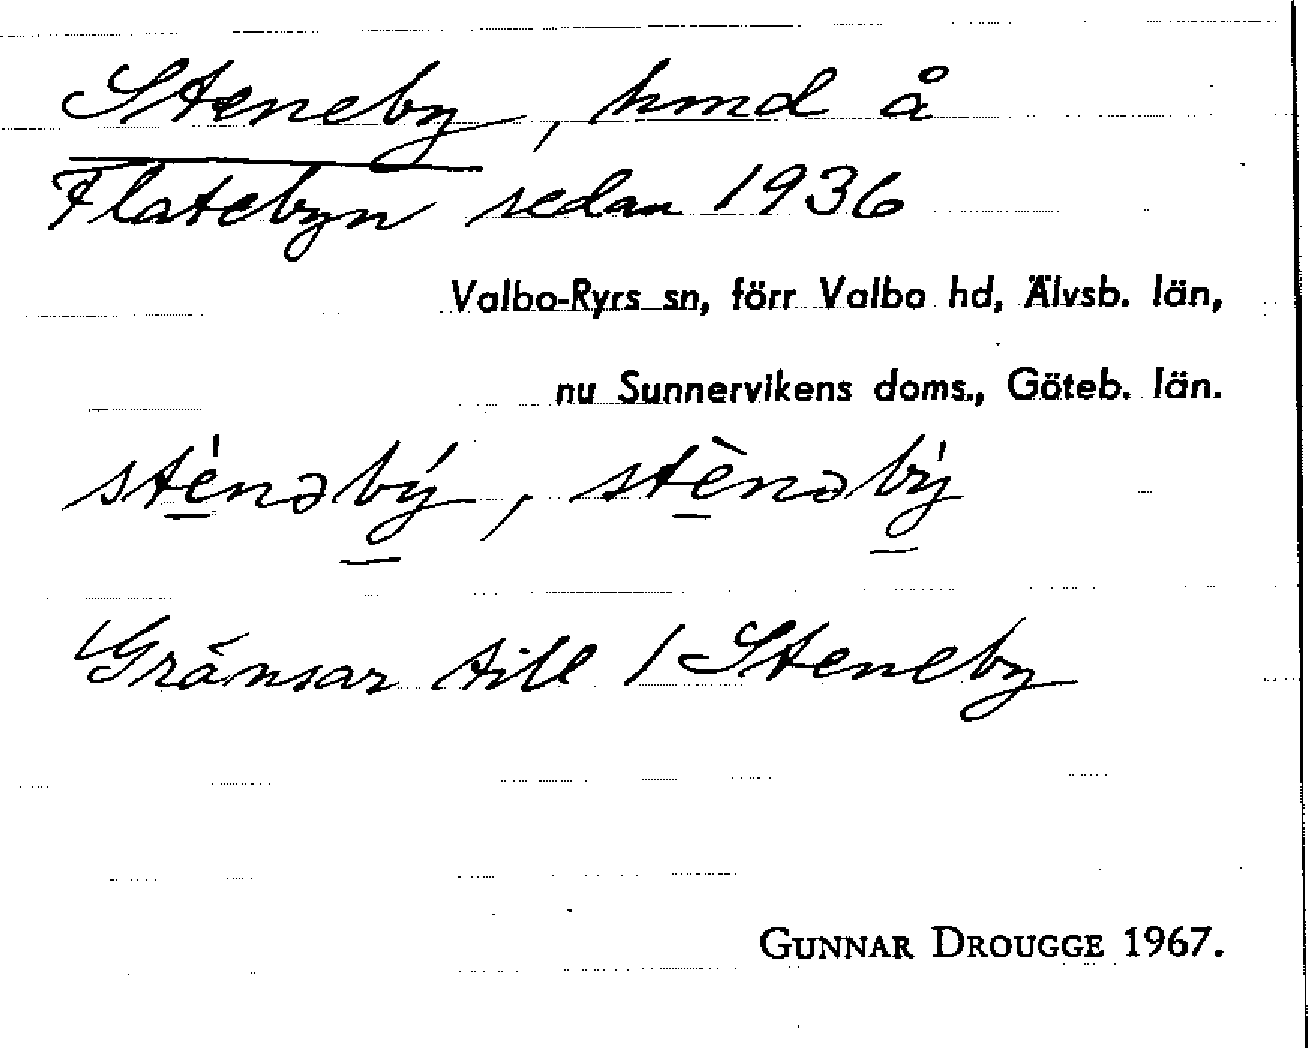 Steneby, hmd å
Flatebyn sedan 1936
Valbo-Ryrs sn, förr Valbo hd, Älvsb. län,
nu Sunnervikens doms., Göteb. län.
sténəbý, stènəbỳ
Gränsar till / Steneby
GUNNAR DROUGGE 1967.